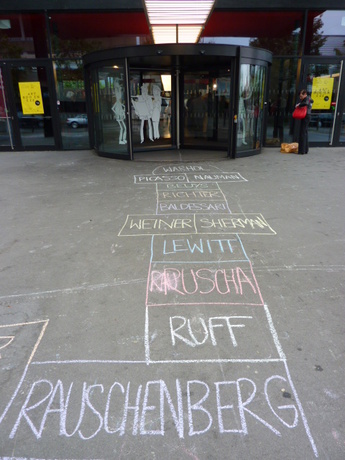 WARHOL
PICASSO NAUMAN
BEUYS
RICHTER
BALDESSARI
WEINER SHERMAN
LEWITT
RUSCHA
RUFF
RAUSCHENBERG